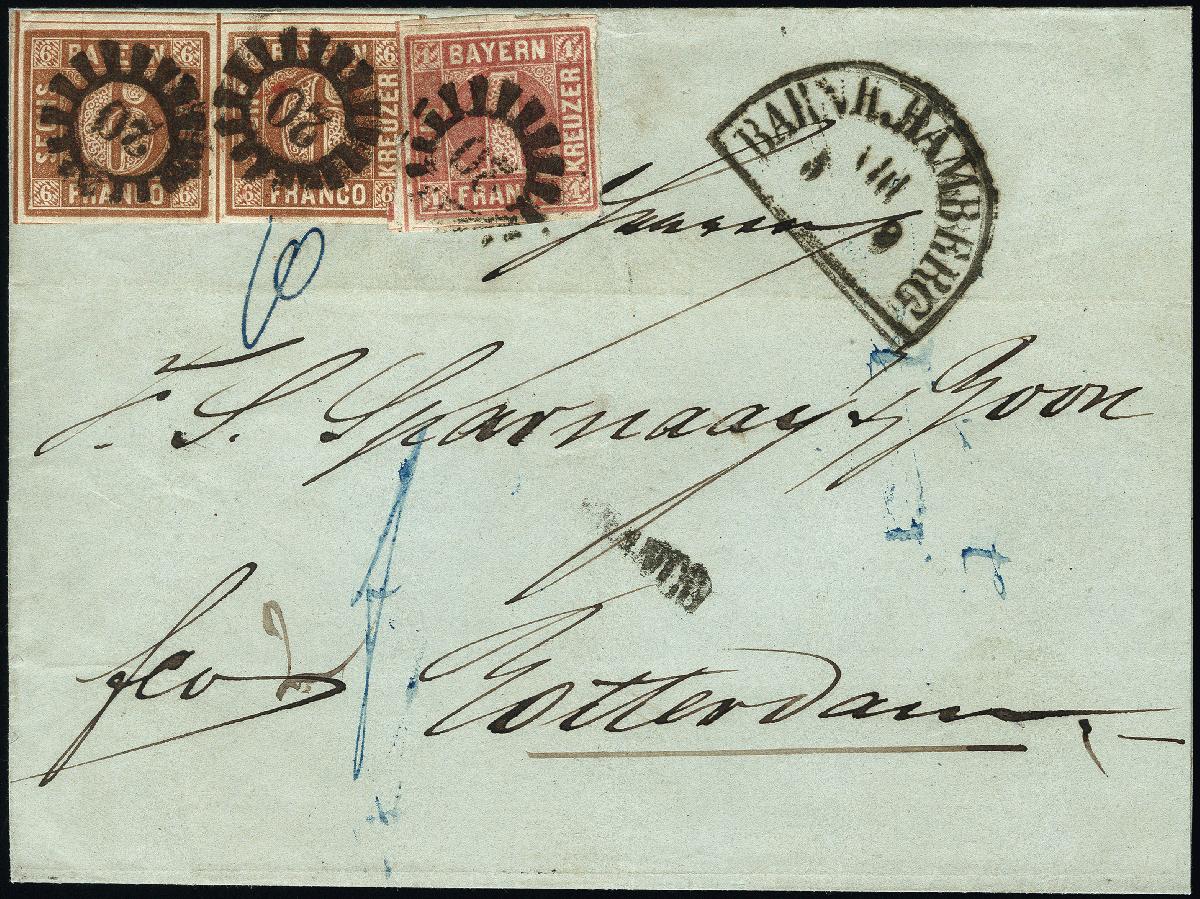 BAYERN BAYERN BAYERN
6 6 6 6 1 1
SECHS KREUZER KREUZER
20 20 20
6 6 6 1
FRANCO FRANCO FRANCO
BAHNH. BAMBERG
8 VIII 9
Herren
J. S. Sparnaay & Zoon
fco
Rotterdam